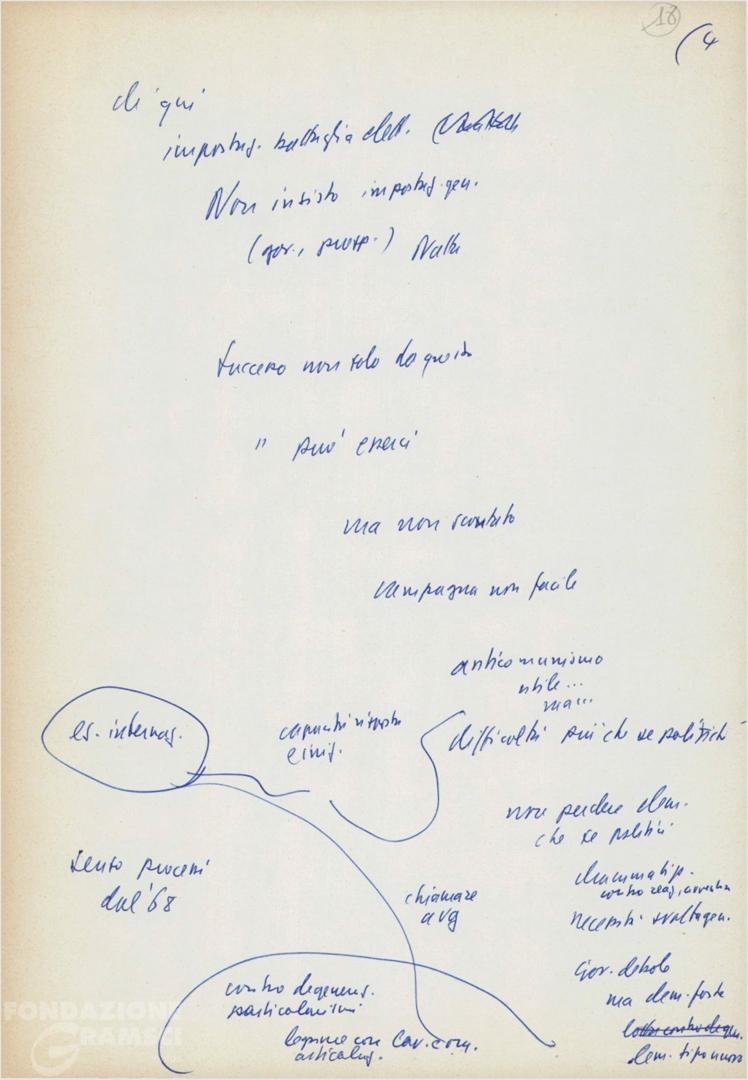 18
(4
di qui
impostaz. battaglia elett.
Non insisto impostaz. gen.
(gov., prosp.) Natta
successo non solo da questo
" può esserci
ma non scontato
campagna non facile
anticomunismo
utile...
ma...
es. internaz.
capacità risposta
e iniz.
difficoltà più che se politiche
non perdere elem.
che se politici
sento processi
dal '68
chiamare
avg
drammatizz.
necessità svolta gen.
gov. debole
ma dem. forte
contro degeneraz.
particolarismi
legame con lav. com.
articolaz.
lotta contro degen.
dem. tipo nuovo
FONDAZIONE
GRAMSCI